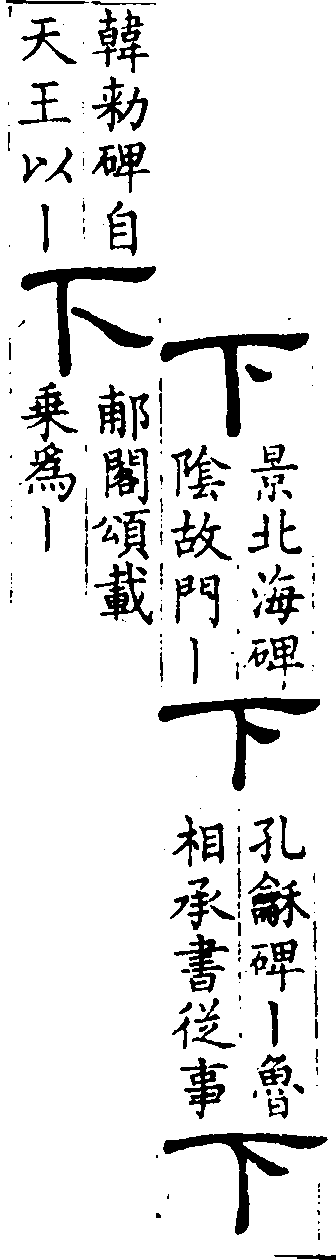 下
景北海碑
陰故門丨
下
孔龢碑丨魯
相承書従事
下
韓勑碑自
天王以丨
下
郙閣頌載
乗爲丨